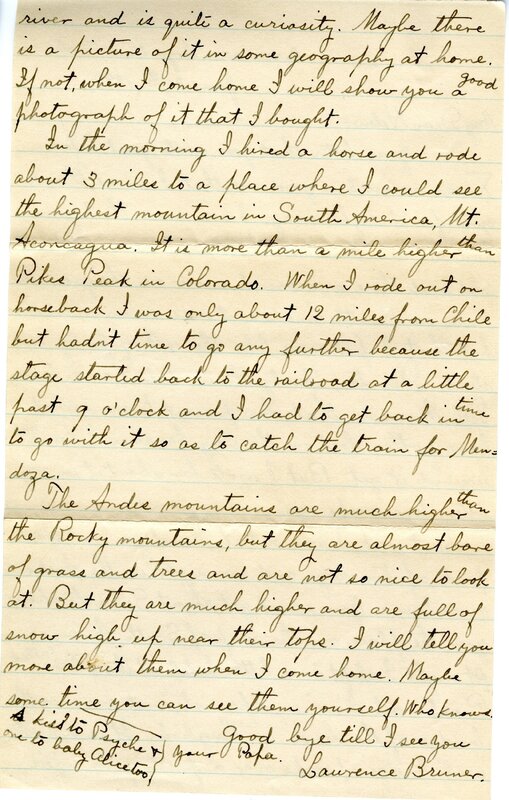 river and is quite a curiosity. Maybe there
is a picture of it in some geography at home.
If not, when I come home I will show you a good
photograph of it that I bought.
In the morning I hired a horse and rode
about 3 miles to a place where I could see
the highest mountain in South America, Mt.
Aconcagua. It is more than a mile higher than
Pikes Peak in Colorado. When I rode out on
horseback I was only about 12 miles from Chile
but hadn't time to go any further because the
stage started back to the railroad at a little
past 9 o'clock and I had to get back in time
to go with it so as to catch the train for Men=
doza.
The Andes mountains are much higher than
the Rocky mountains, but they are almost bare
of grass and trees and are not so nice to look
at. But they are much higher and are full of
snow high up near their tops. I will tell you
more about them when I come home. Maybe
some time you can see them yourself. Who knows.
A kiss to Psyche &
one to baby Alice too,
Good bye till I see you
your Papa.
Lawrence Bruner.